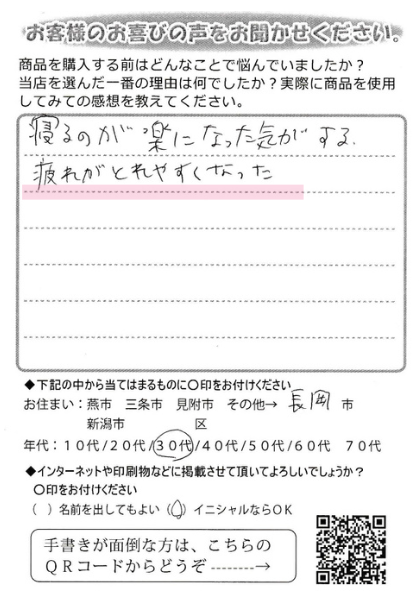 お客様のお喜びの声をお聞かせください。
商品を購入する前はどんなことで悩んでいましたか？
当店を選んだ一番の理由は何でしたか？実際に商品を使用
してみての感想を教えてください。
寝るのが楽になった気がする.
疲れがとれやすくなった
◆下記の中から当てはまるものに〇印をお付けください
お住まい：燕市　三条市　見附市　その他→ 長岡 市
新潟市　　　　　区
年代：１０代/２０代/３０代/４０代/５０代/６０代　７０代
◆インターネットや印刷物などに掲載させて頂いてよろしいでしょうか？
〇印をお付けください
（　）名前を出してもよい（〇）イニシャルならＯＫ
手書きが面倒な方は、こちらの
ＱＲコードからどうぞ --------→